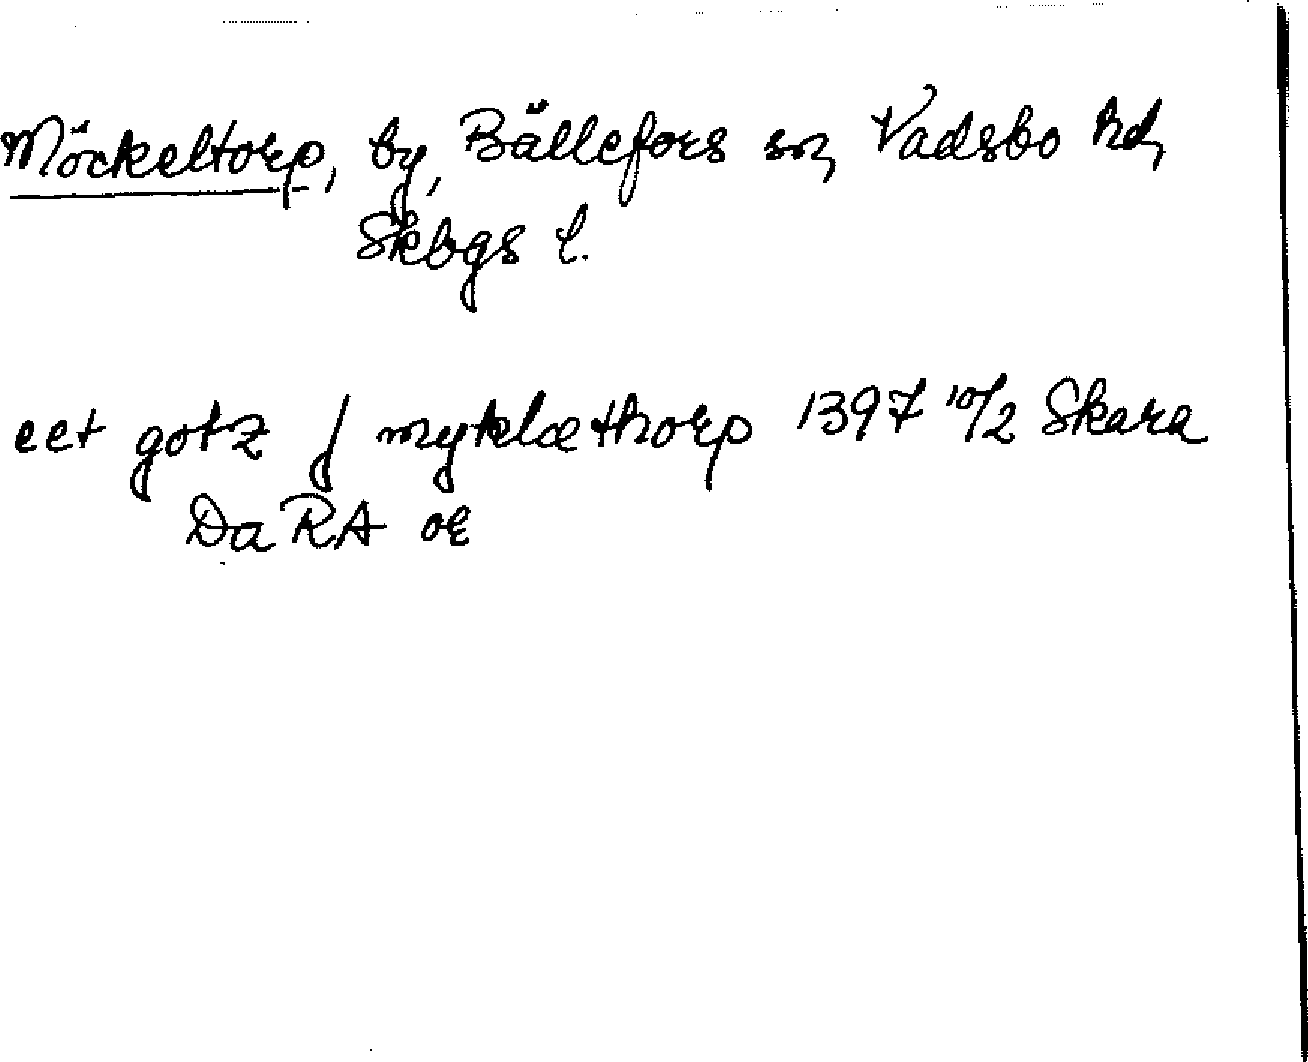 Möckeltorp, by, Bällefors sn, Vadsbo hd,
Skbgs l.
eet gotz j myklæthorp 1397 10/2 Skara
DaRA or